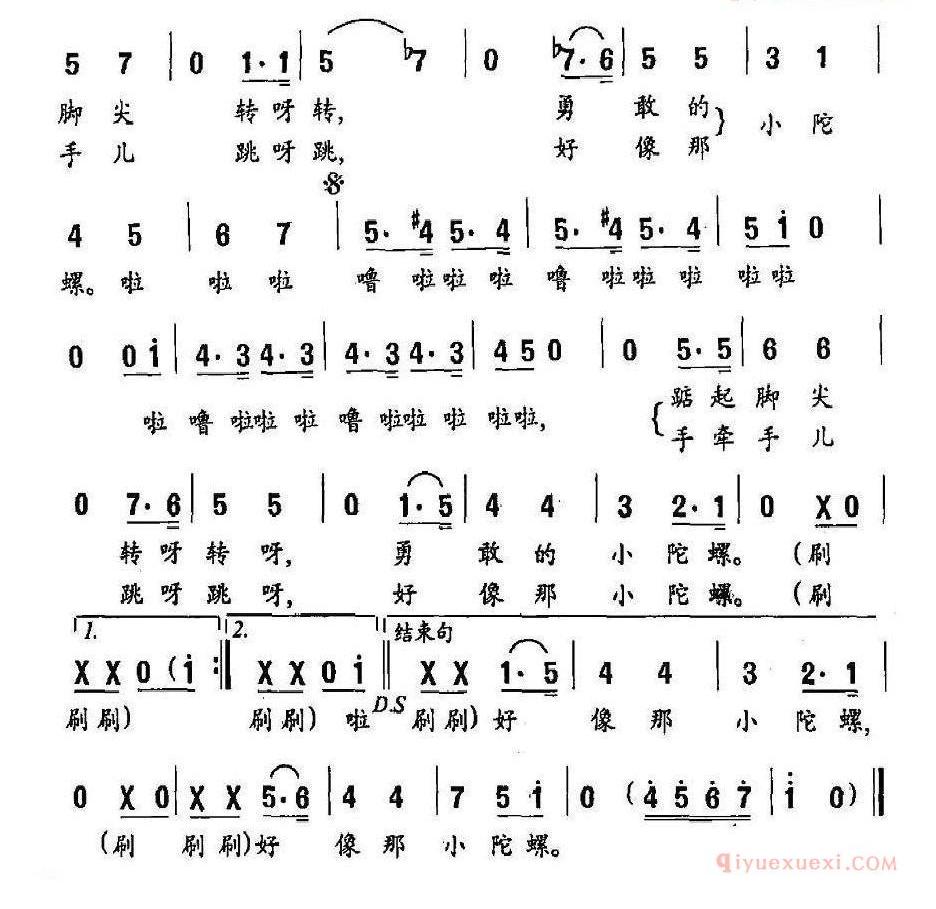 5 7 | 0 1·1 | 5 ♭7 | 0 ♭7·6 | 5 5 | 3 1 |
脚尖 转呀转, 勇敢的} 小陀
手儿 跳呀跳, 好像那
4 5 | 6 7 | 5·♯4 5·4 | 5·♯4 5·4 | 5 i 0 |
螺。啦 啦 啦 噜 啦啦 啦 噜 啦啦 啦 啦啦
0 0 i | 4·3 4·3 | 4·3 4·3 | 4 5 0 | 0 5·5 | 6 6 |
啦 噜 啦啦 啦 噜 啦啦 啦 啦啦, {踮起脚尖
手牵手儿
0 7·6 | 5 5 | 0 1·5 | 4 4 | 3 2·1 | 0 X 0 |
转呀转呀, 勇敢的小陀螺。(刷
跳呀跳呀, 好像那小陀螺。(刷
1. 2. 结束句
X X 0 (i :‖ X X 0 i ‖ X X 1·5 | 4 4 | 3 2·1 |
D.S
刷刷) 刷刷) 啦 刷刷) 好 像那小陀螺,
0 X 0 | X X 5·6 | 4 4 | 7 5 i | 0 (4 5 6 7 | i 0) ‖
(刷 刷刷)好 像那小陀螺。
qiyuexuexi.COM